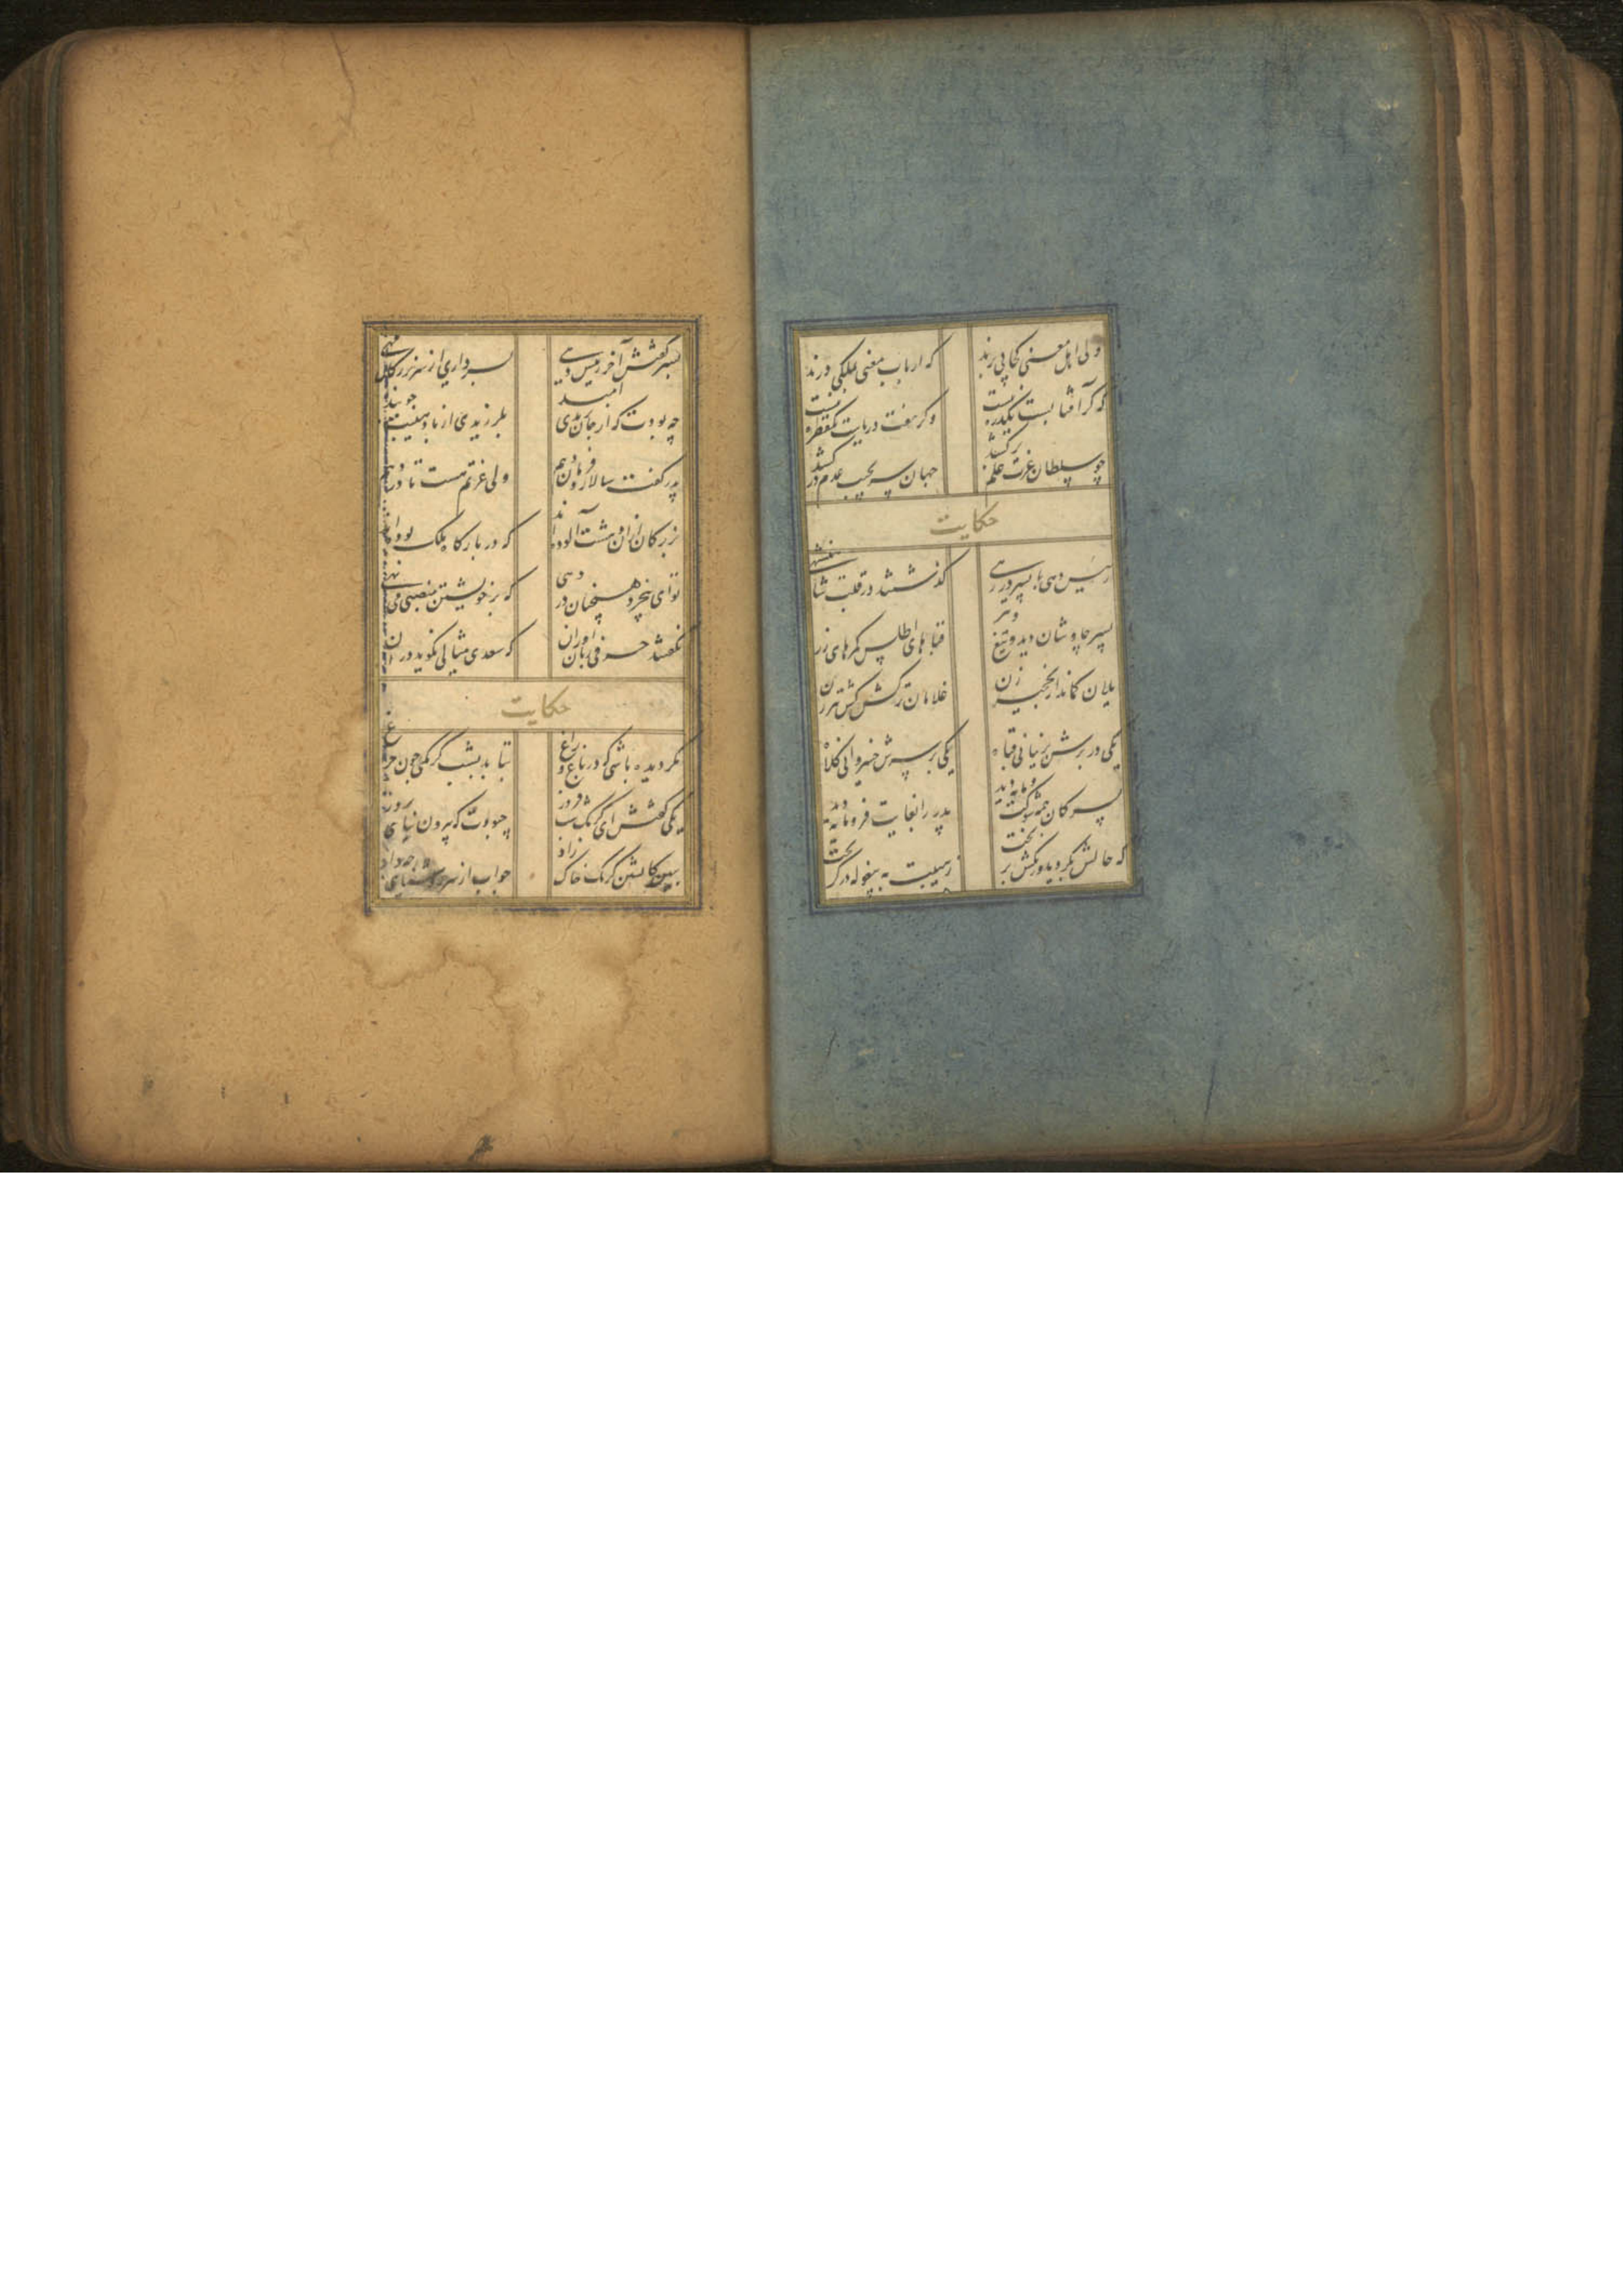 ولی اهل معنی کجا پی برند که ارباب معنی بملکی درند
که گر آفتابست یکذره نیست وگر هفت دریاست یکقطره نیست
چو سلطان عزت علم برکشد جهان سر بجیب عدم درکشد
حکایت
رئیس دهی با پسر در رهی گذشتند در قلب شاهنشهی
پسر چاوشان دید و تیغ و تبر قباهای اطلس کمرهای زر
یلان کماندار نخجیر زن غلامان ترکش کش تیر زن
یکی در برش پرنیانی قباه یکی بر سرش خسروانی کلاه
پسر کان همه شوکت و پایه دید پدر را بغایت فرومایه دید
که حالش بگردید و رنگش بریخت ز هیبت به پیغوله در گریخت
پسر گفتش آخر رئیس دهی بسرداری از سر بزرگان مهی
چه بودت که از جان بریدی امید بلرزیدی از باد هیبت چو بید
پدر گفت سالار و فرمان دهم ولی عزتم هست تا در دهم
بزرگان ازان دهشت آلوده اند که در بارگاه ملک بوده اند
تو ای بیخبر همچنان در دهی که بر خویشتن منصبی می نهی
نگفتند حرفی زبان اوران که سعدی مثالی نگوید در ان
حکایت
مگر دیده باشی که در باغ و راغ بتابد بشب کرمکی چون چراغ
یکی گفتش ای کرمک شب فروز چه بودت که بیرون نیایی بروز
ببین کاتشین کرمک خاک زاد جواب از سر روشنایی چه داد